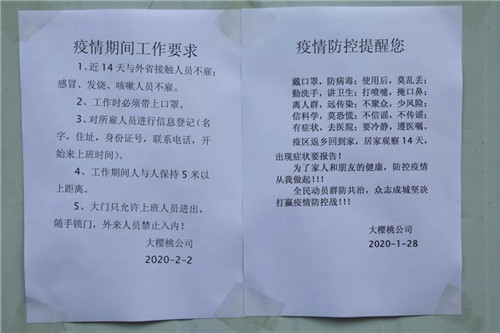 疫情期间工作要求
1、近14天与外省接触人员不雇;
感冒、发烧、咳嗽人员不雇。
2、工作时必须带上口罩。
3、对所雇人员进行信息登记(名
字,住址,身份证号,联系电话,开
始来上班时间)。
4、工作期间人与人保持5米以
上距离。
5、大门只允许上班人员进出,
随手锁门,外来人员禁止入内!
大樱桃公司
2020-2-2
疫情防控提醒您
戴口罩,防病毒;使用后,莫乱丢;
勤洗手,讲卫生;打喷嚏,掩口鼻;
离人群,远传染;不聚众,少风险;
信科学,莫恐慌;不信谣,不传谣;
有症状,去医院;要冷静,遵医嘱。
疫区返乡回到家,居家观察14天,
出现症状要报告!
为了家人和朋友的健康,防控疫情
从我做起!!!
全民动员群防共治,众志成城坚决
打赢疫情防控战!!!
大樱桃公司
2020-1-28